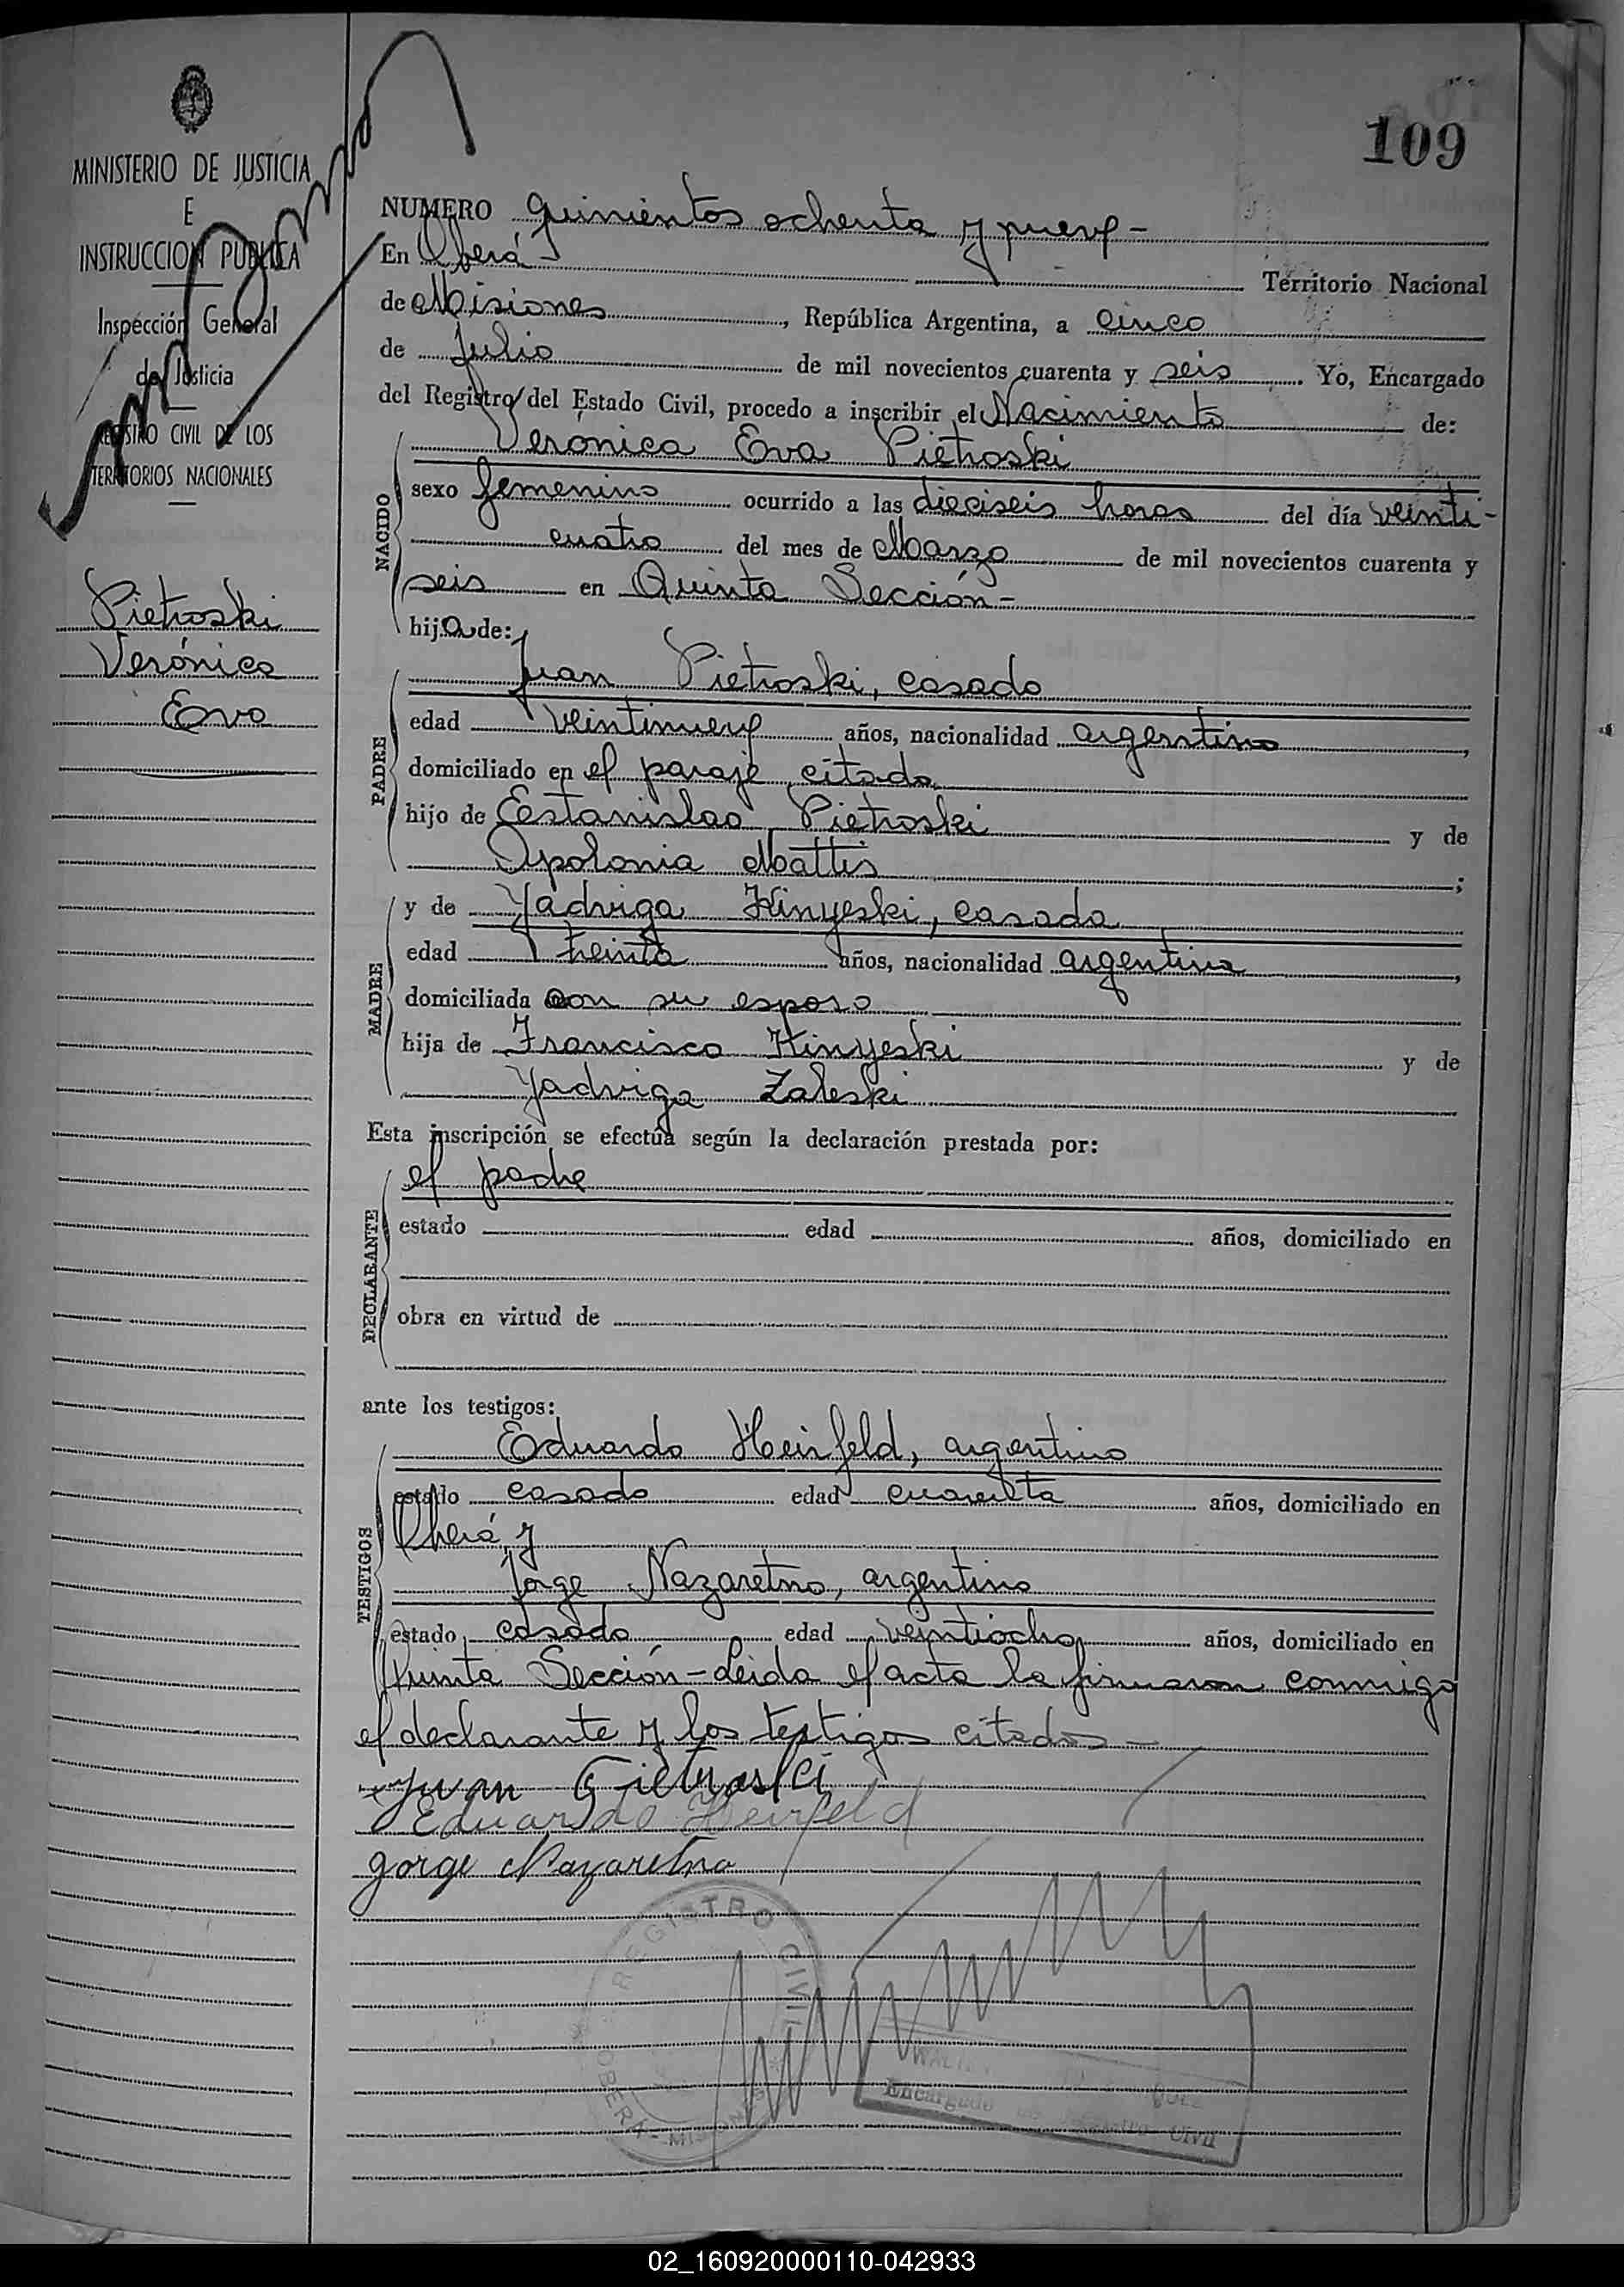 109
MINISTERIO DE JUSTICIA
E
INSTRUCCION PUBLICA
Inspección General
de Justicia
REGISTRO CIVIL DE LOS
TERRITORIOS NACIONALES
Pietroski
Verónica
Eva
NUMERO quinientos ochenta y nueve -
En Oberá Territorio Nacional
de Misiones, República Argentina, a cinco
de Julio de mil novecientos cuarenta y seis. Yo, Encargado
del Registro del Estado Civil, procedo a inscribir el Nacimiento de:
NACIDO
Verónica Eva Pietroski
sexo femenino ocurrido a las dieciseis horas del día veinti-
cuatro del mes de Marzo de mil novecientos cuarenta y
seis en Quinta Sección-
hija de:
PADRE
Juan Pietroski, casado
edad veintinueve años, nacionalidad argentino,
domiciliado en el paraje citado
hijo de Eestanislao Pietroski y de
Apolonia Mattis;
MADRE
y de Yadviga Kinyeski, casada
edad treinta años, nacionalidad argentina,
domiciliada con su esposo
hija de Francisco Kinyeski y de
Yadviga Zaleski
Esta inscripción se efectúa según la declaración prestada por:
DECLARANTE
el padre
estado edad años, domiciliado en
obra en virtud de
ante los testigos:
TESTIGOS
Eduardo Heinfeld, argentino
estado casado edad cuarenta años, domiciliado en
Oberá, y
Jorge Nazaretno, argentino
estado casado edad veintiocho años, domiciliado en
Quinta Sección-Leida el acta la firmaron conmigo
el declarante y los testigos citados -
Juan Pietroski
Eduardo Heinfeld
Jorge Nazaretno
REGISTRO CIVIL
OBERÁ - MISIONES
Encargado Registro Civil
02_160920000110-042933